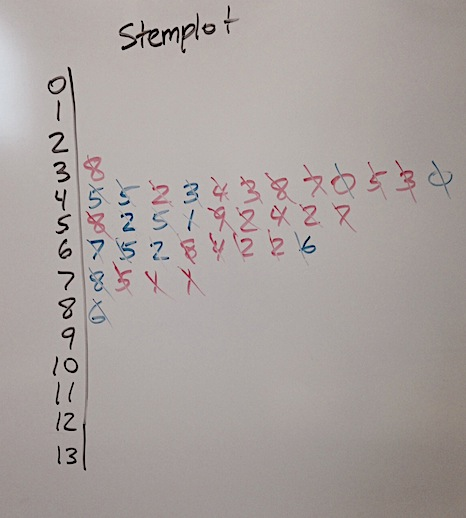 Stemplot
0
1
2
3 8
4 5 5 2 3 4 3 8 7 0 5 3 0
5 8 2 5 1 9 2 4 2 7
6 7 5 2 8 4 2 2 6
7 8 5
8 6
9
10
11
12
13